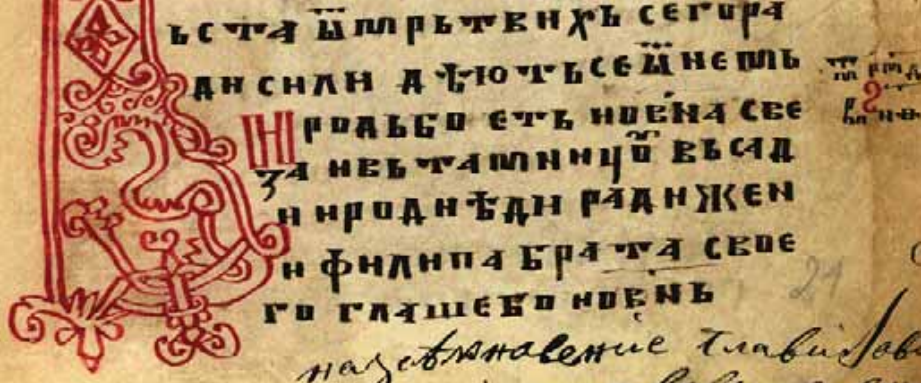 ьста ѿ мрьтвихь сегора
ди сили дѣють се ѡ немь
Иродь бо еть иована све
за ивь тамницоу вьсад
и иродиѣди ради жен
и филипа брата свое
го глаше бо иовнь
глави